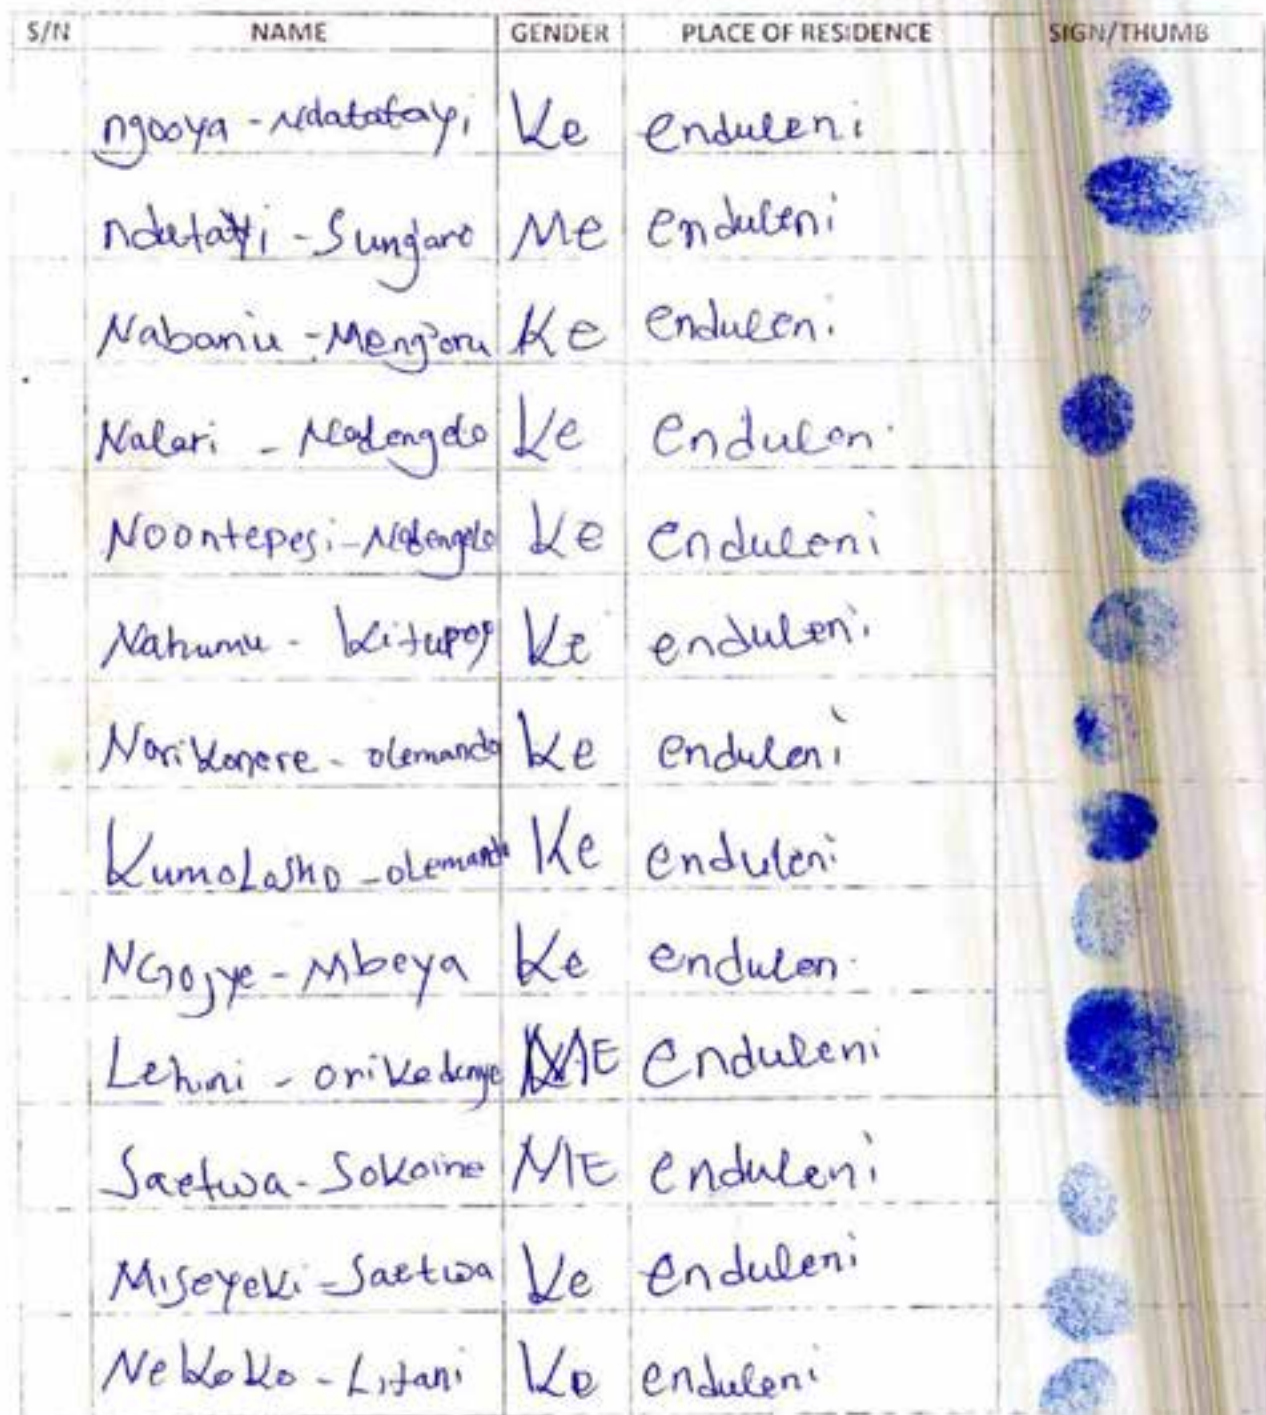 S/N NAME GENDER PLACE OF RESIDENCE SIGN/THUMB
ngooya - Ndatatayi Ke enduleni
ndutatti - Sungare Me enduleni
Nabaniu - Meng'oru Ke enduleni
Nalari - Ke enduleni
Noontepesi - Ke enduleni
Nahumu - Kitupoy Ke enduleni
Norikonere - olemando Ke enduleni
KumoLasho - olemando Ke enduleni
NGojye - Mbeya Ke endulen
Lehini - ME enduleni
Saetwa - Sokoine ME enduleni
Miseyeki - Saetwa Ke enduleni
Nekoko - Litani Ke enduleni